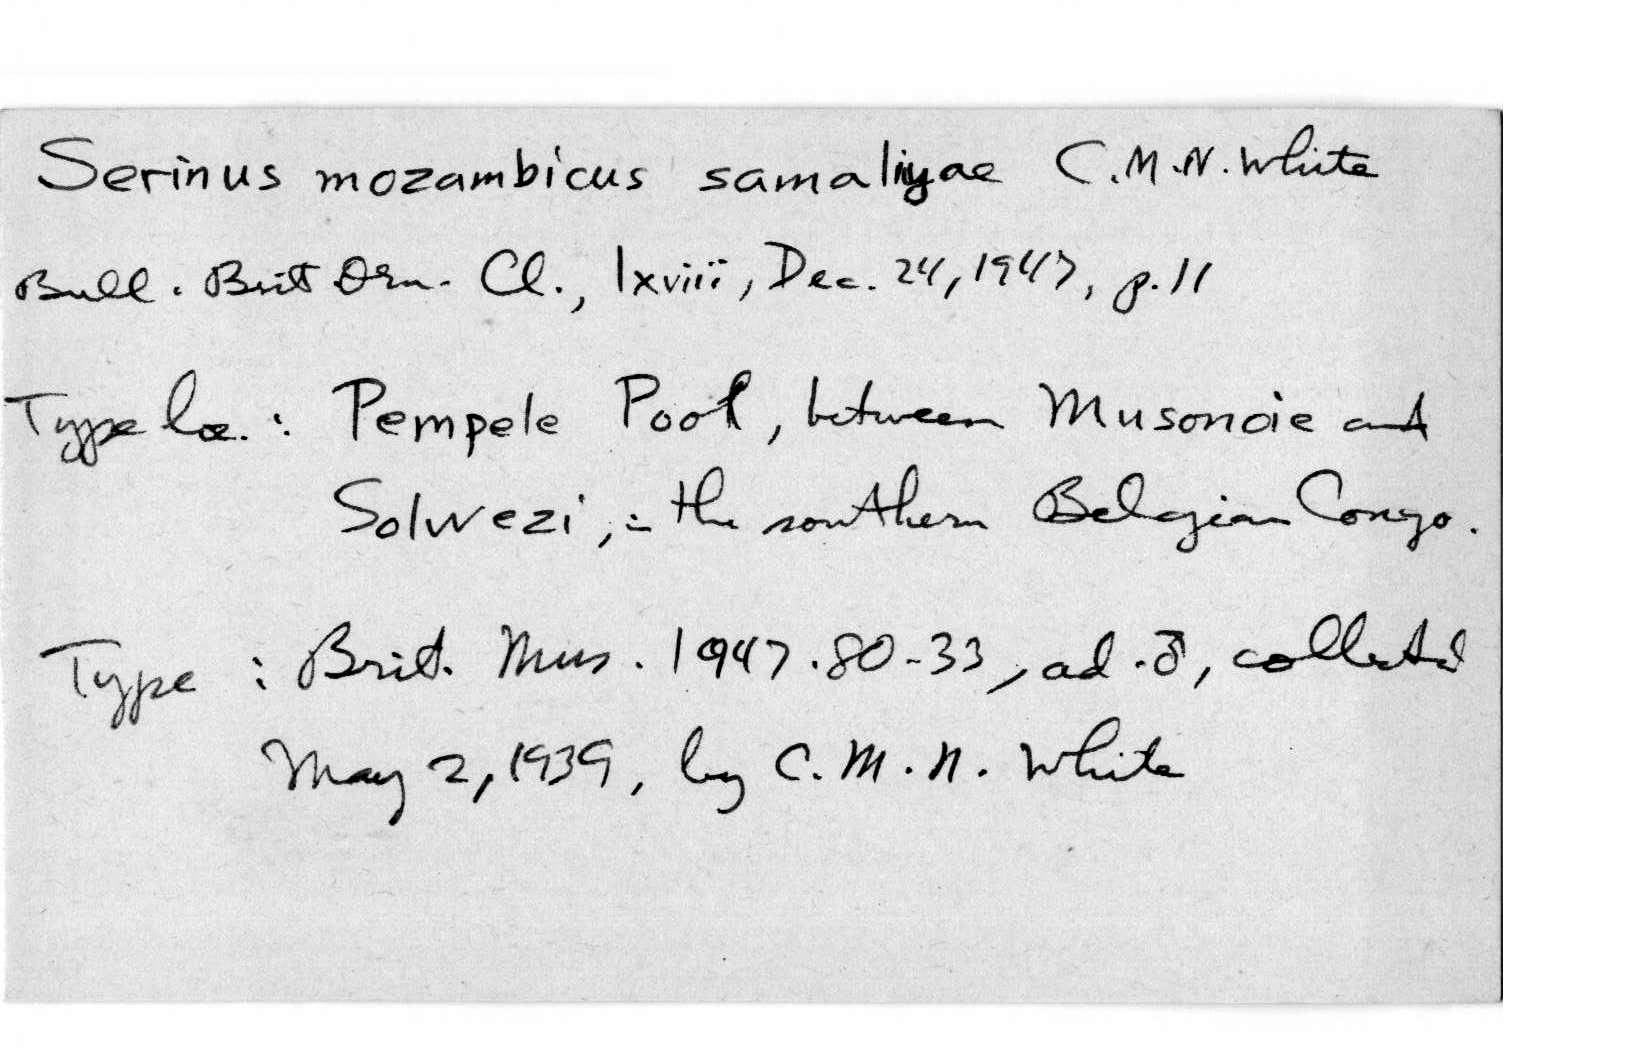 Serinus mozambicus samaliyae C.M.N. White
Bull. Brit Orn. Cl., lxviii, Dec. 24, 1947, p. 11
Type loc. : Pempele Pool, between Musonoie and
Solwezi, in the southern Belgian Congo.
Type : Brit. Mus. 1947.80-33, ad. ♂, collected
May 2, 1939, by C. M. N. White